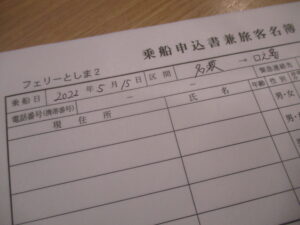 乗船申込書兼旅客名簿
フェリーとしま2
乗船日 2022年5月15日 区間 名瀬 → 口之島 緊急連絡先
電話番号(携帯番号) － －
現住所 氏名 年齢 性別
男・女
男・
男